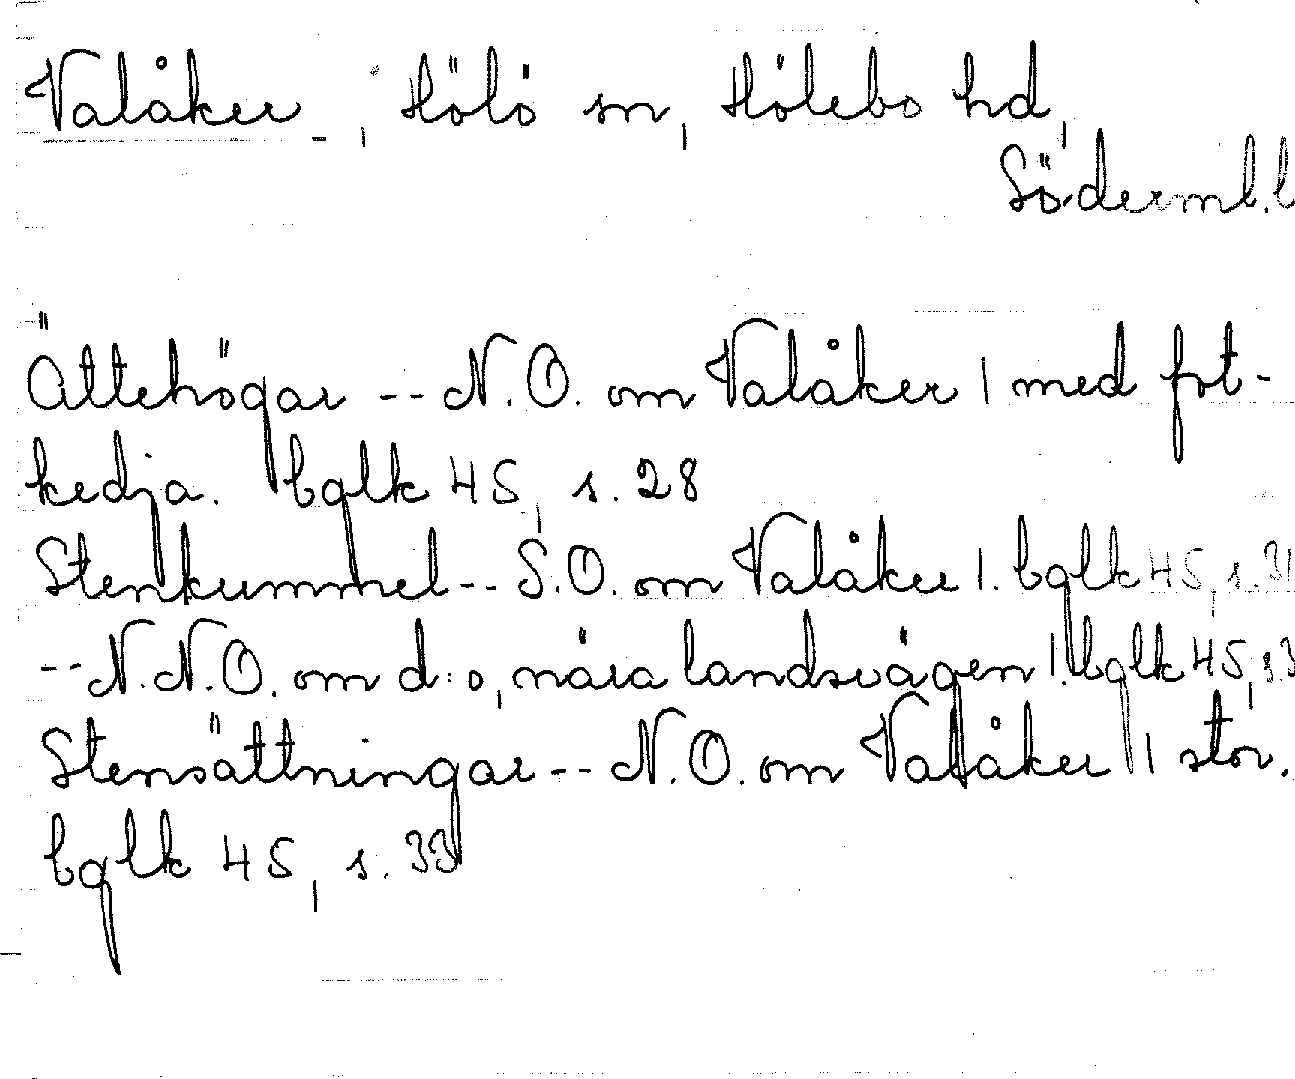 Valåker, Hölö sn, Hölebo hd,
Söderml. l
Ättehögar -- N.O. om Valåker | med fot-
kedja. bglk 45, s. 28
Stenkummel -- S.O. om Valåker |. bglk 45, s. 31
-- N.N.O. om d:o, nära landsvägen |. bglk 45, s 3
Stensättningar -- N.O. om Valåker | | stor.
bglk 45, s. 33